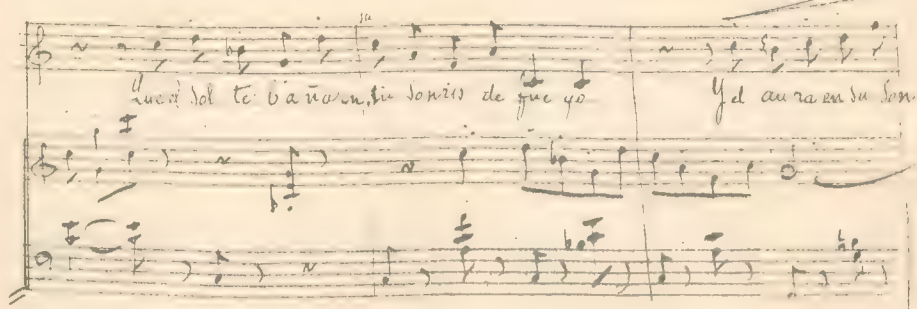 su
Que el sol te baña en su sonris de fue yo Y el au ra en su son